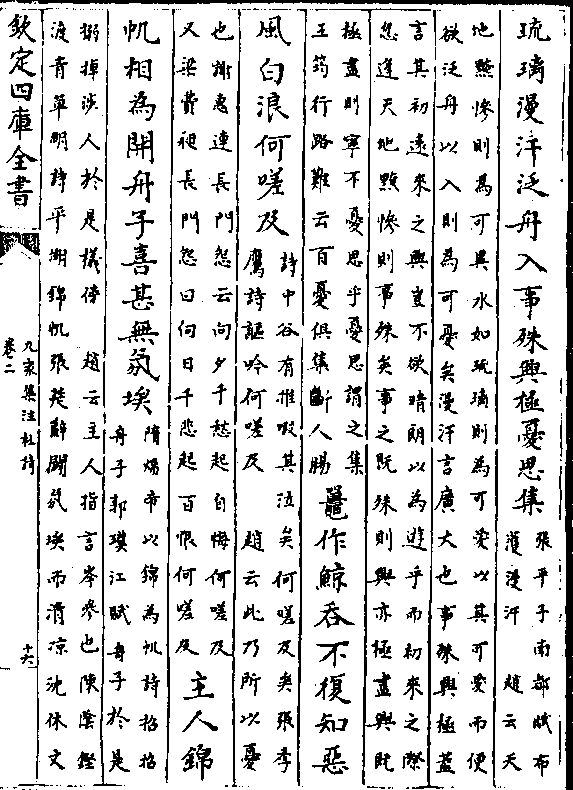 琉璃漫汗泛舟入事殊興極憂思集
張平子南都賦布
濩漫汗　趙云天
地黤慘則為可異水如琉璃則為可愛以其可愛而便
欲泛舟以入則為可憂矣漫汗言廣大也事殊興極蓋
言其初遠來之興豈不欲晴朗以為遊乎而初來之際
忽逢天地黤慘則事殊矣事之既殊則興亦極盡興既
極盡則寧不憂思乎憂思謂之集
王筠行路難云百憂俱集斷人腸
鼉作鯨吞不復知惡
風白浪何嗟及
詩中谷有推啜其泣矣何嗟及矣張季
鷹詩謳吟何嗟及　趙云此乃所以憂
也謝惠連長門怨云向夕千愁起自悔何嗟及
又梁費昶長門怨曰向日千悲起百恨何嗟及
主人錦
帆相為開舟子喜甚無氛埃
隋煬帝以錦為帆詩招招
舟子郭璞江賦舟子於是
搦棹涉人於是檥傍　趙云主人指言岑參也陳陰鏗
渡青草湖詩平湖錦帆張楚辭闢氛埃而清凉沈休文
欽定四庫全書
九家集注杜詩
卷二
十六